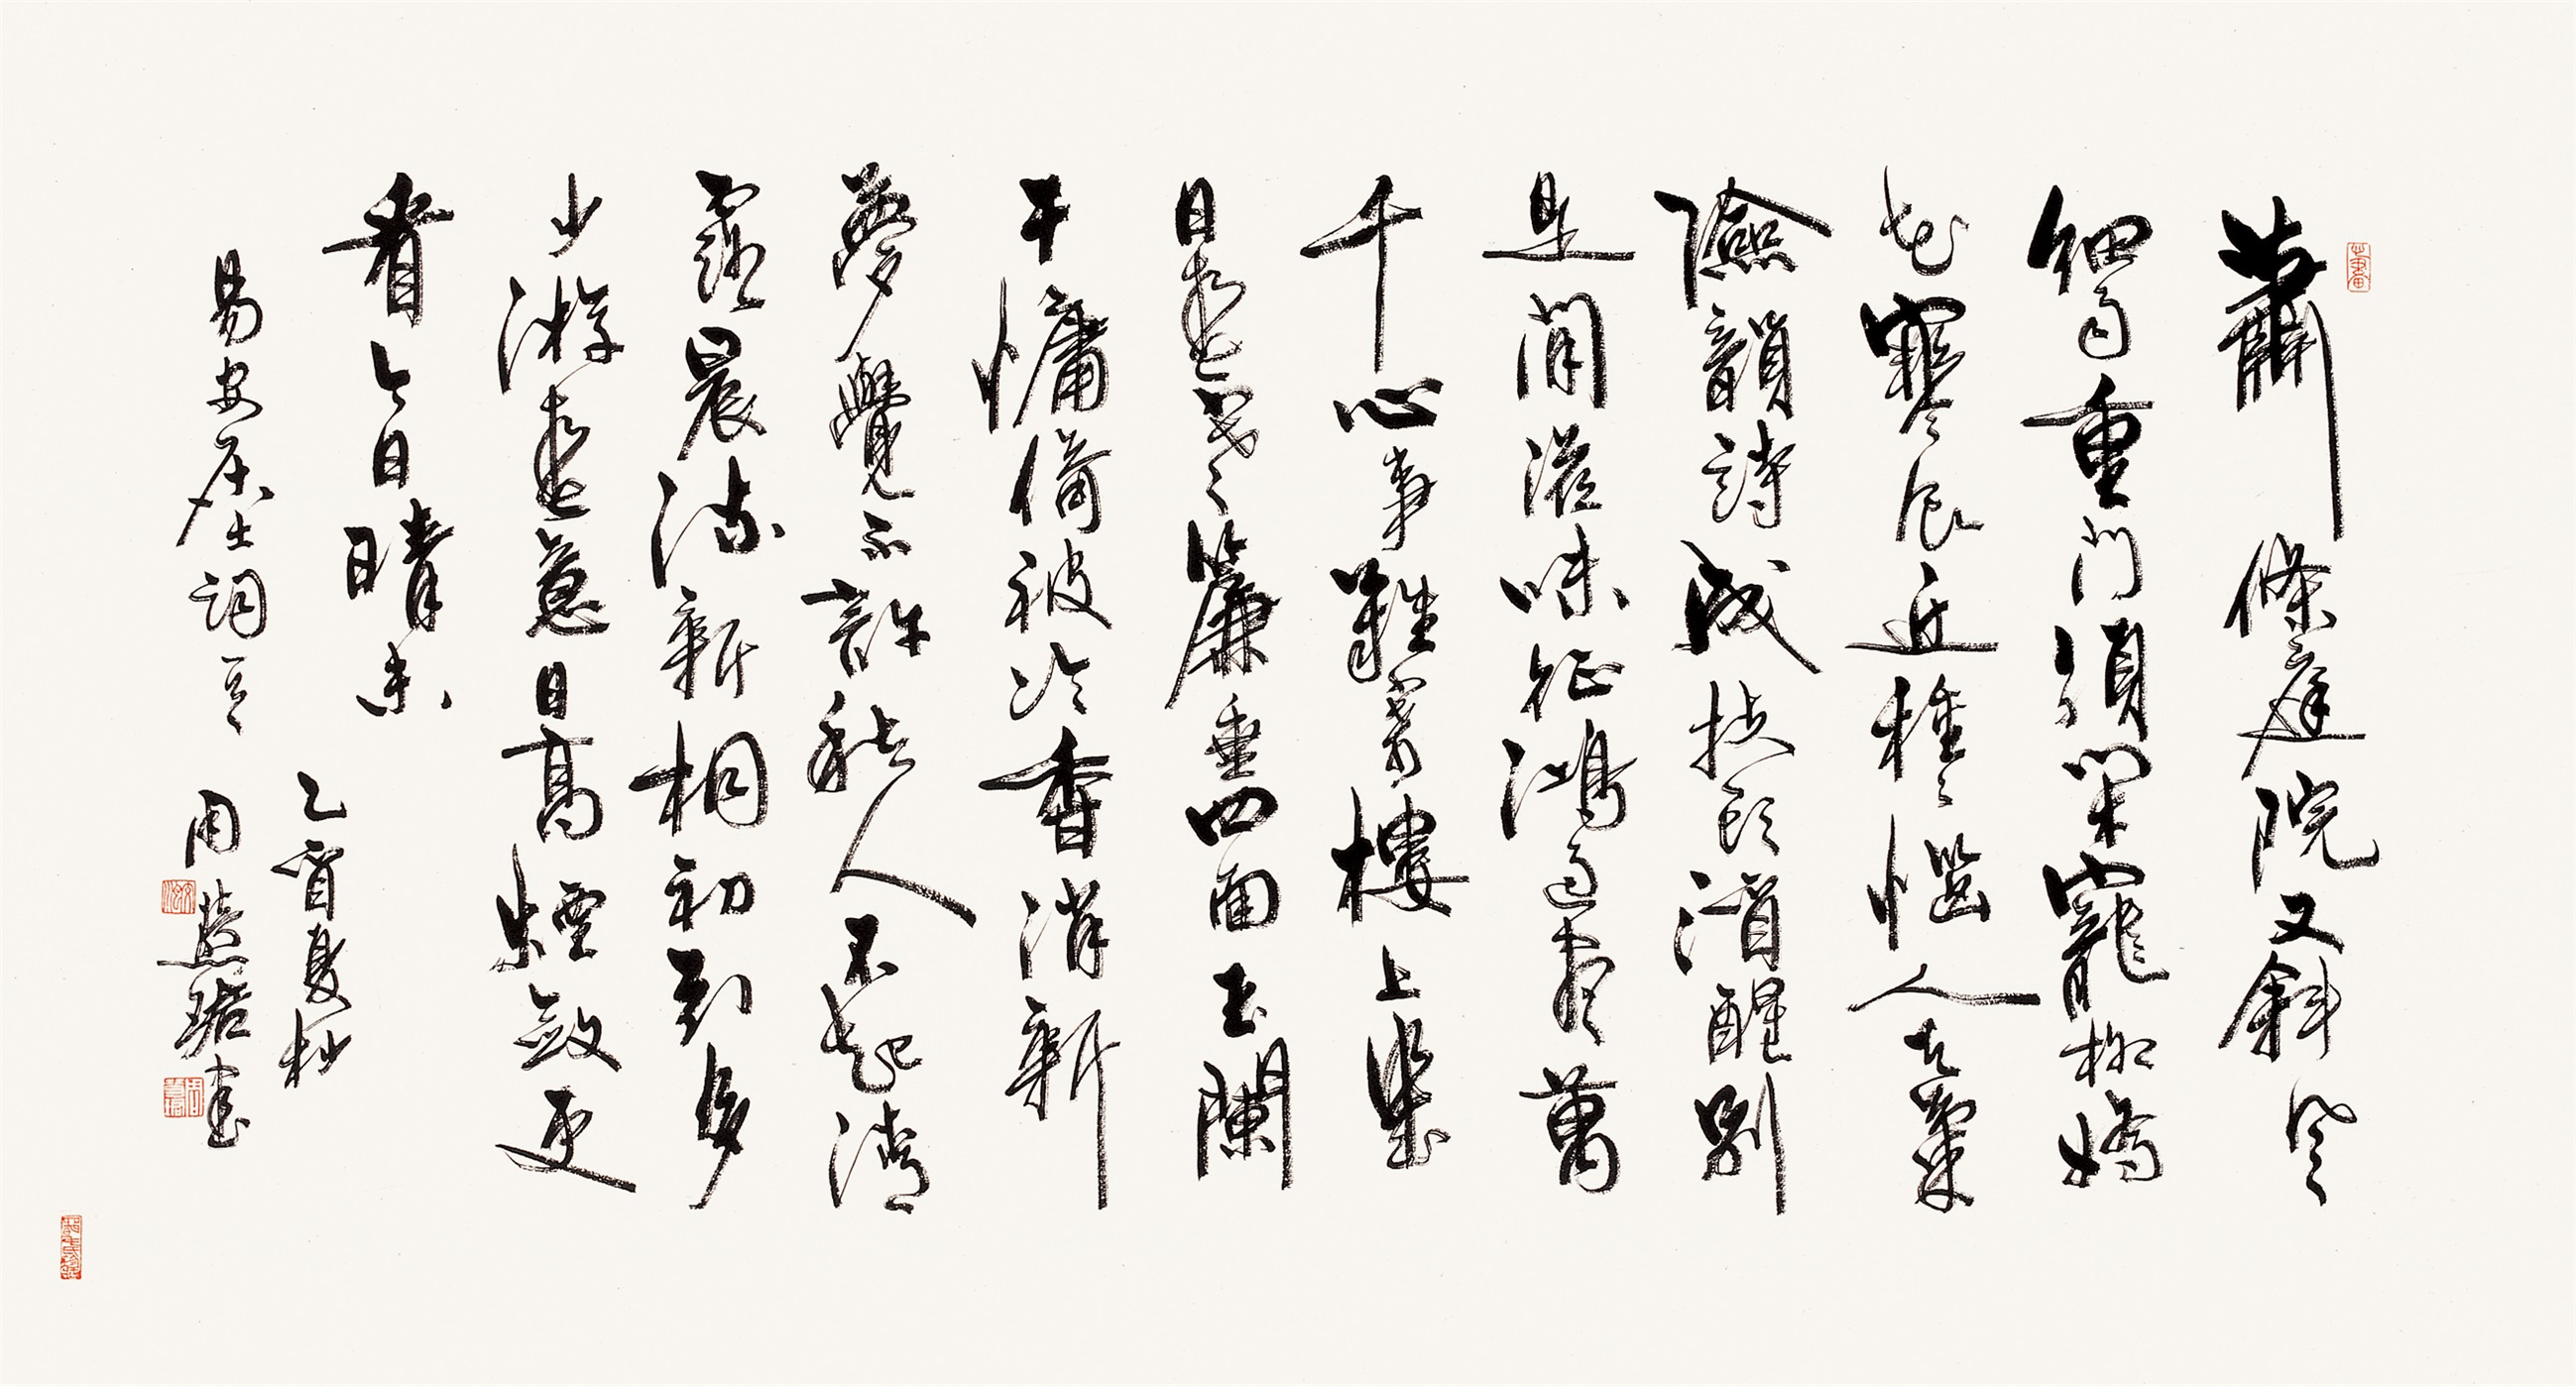 蕭條庭院又斜風
細雨重門須閉寵柳嬌
花寒食近種種惱人天氣
險韻詩成扶頭酒醒別
是閒滋味征鴻過盡萬
千心事難寄樓上幾
日春寒簾垂四面玉闌
干慵倚被冷香消新
夢覺不許愁人不起清
露晨流新桐初引多
少游春意日高煙斂更
看今日晴未
易安居士詞一首
乙酉夏杪
周慧珺書